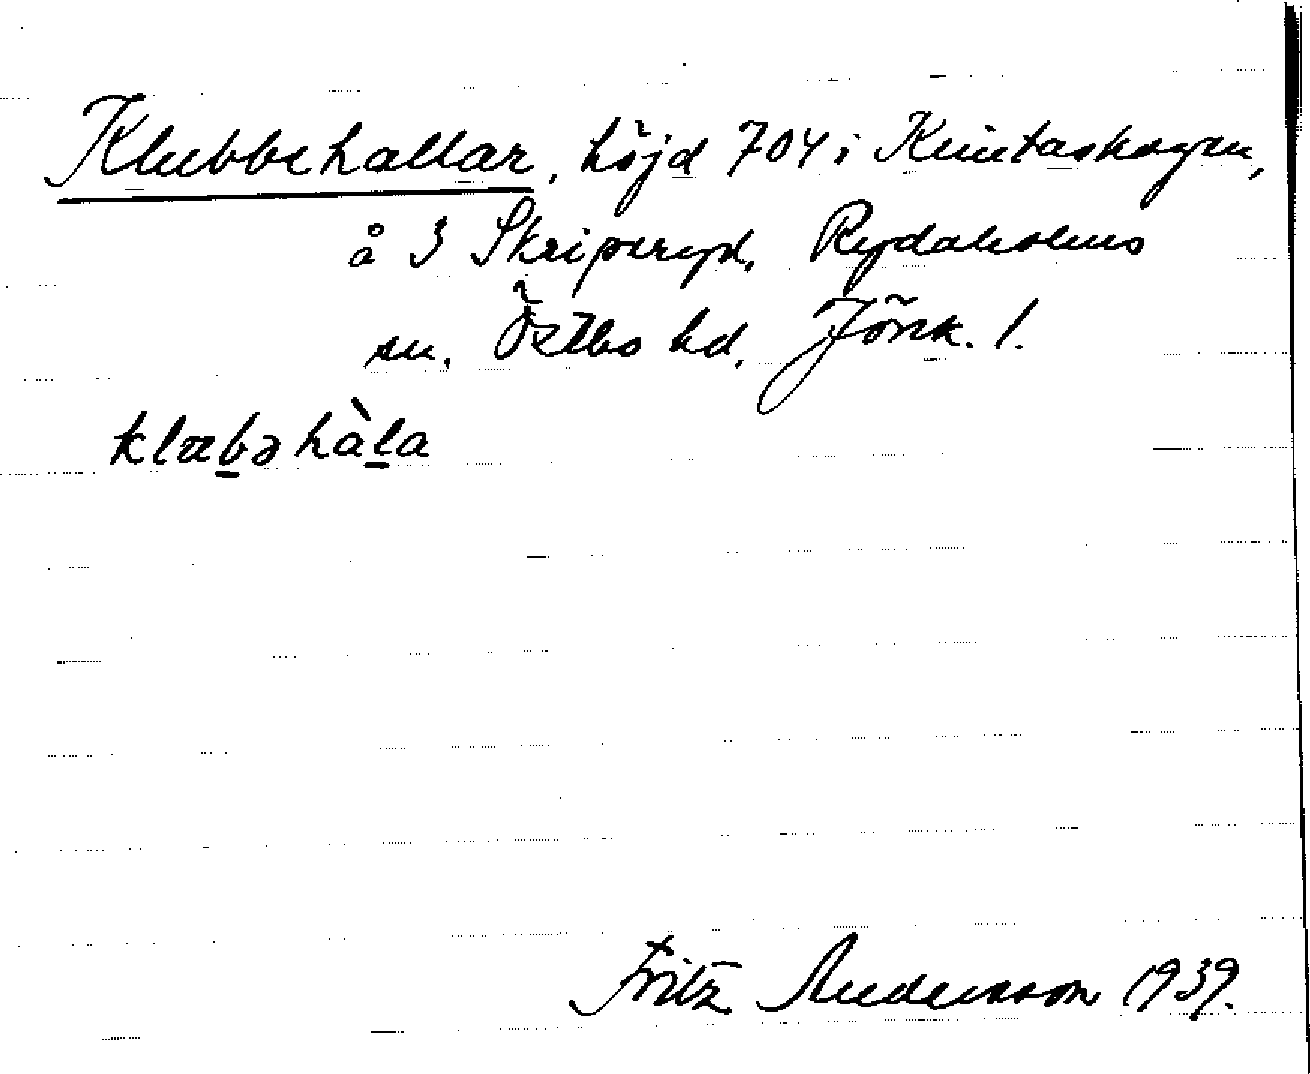 Klubbehallar, höjd 704 i Knutaskogen,
å 3 Skriperyd, Rydaholms
sn. Östbo hd. Jönk. l.
klæbəhàla
Fritz Andersson 1939.